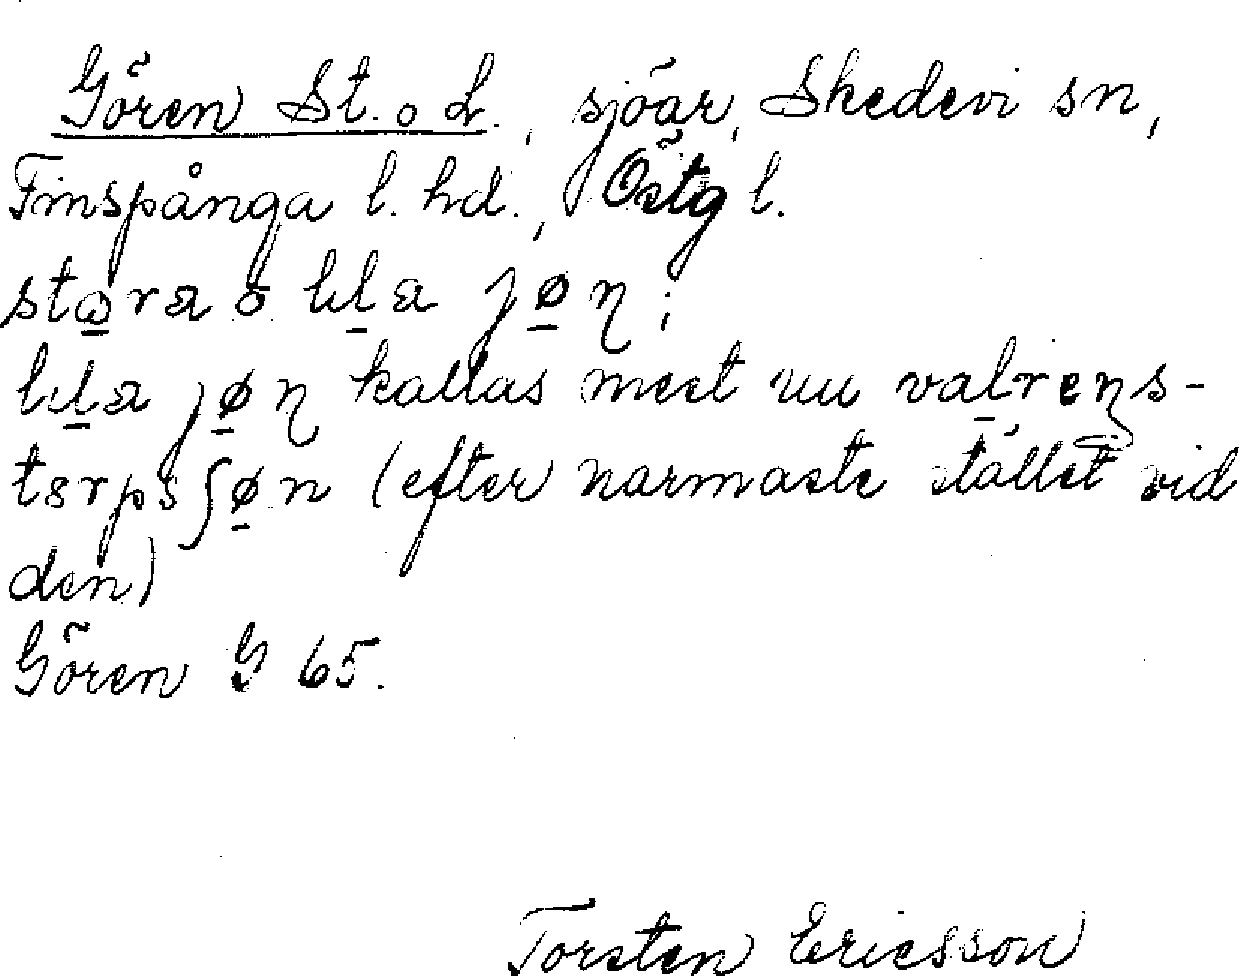 Gören St. o L., sjöar, Skedevi sn,
Finspånga l. hd., Östg l.
stɷra o lɩla jøɳ;
lɩla jøɳ kallas mest nu valreɳs-
tɵrpsʃøn (efter närmaste stället vid
den)
Gören G 65.
Torsten Ericsson